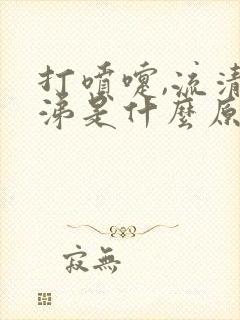 打噴嚏,流清
涕是什麼原
寂無